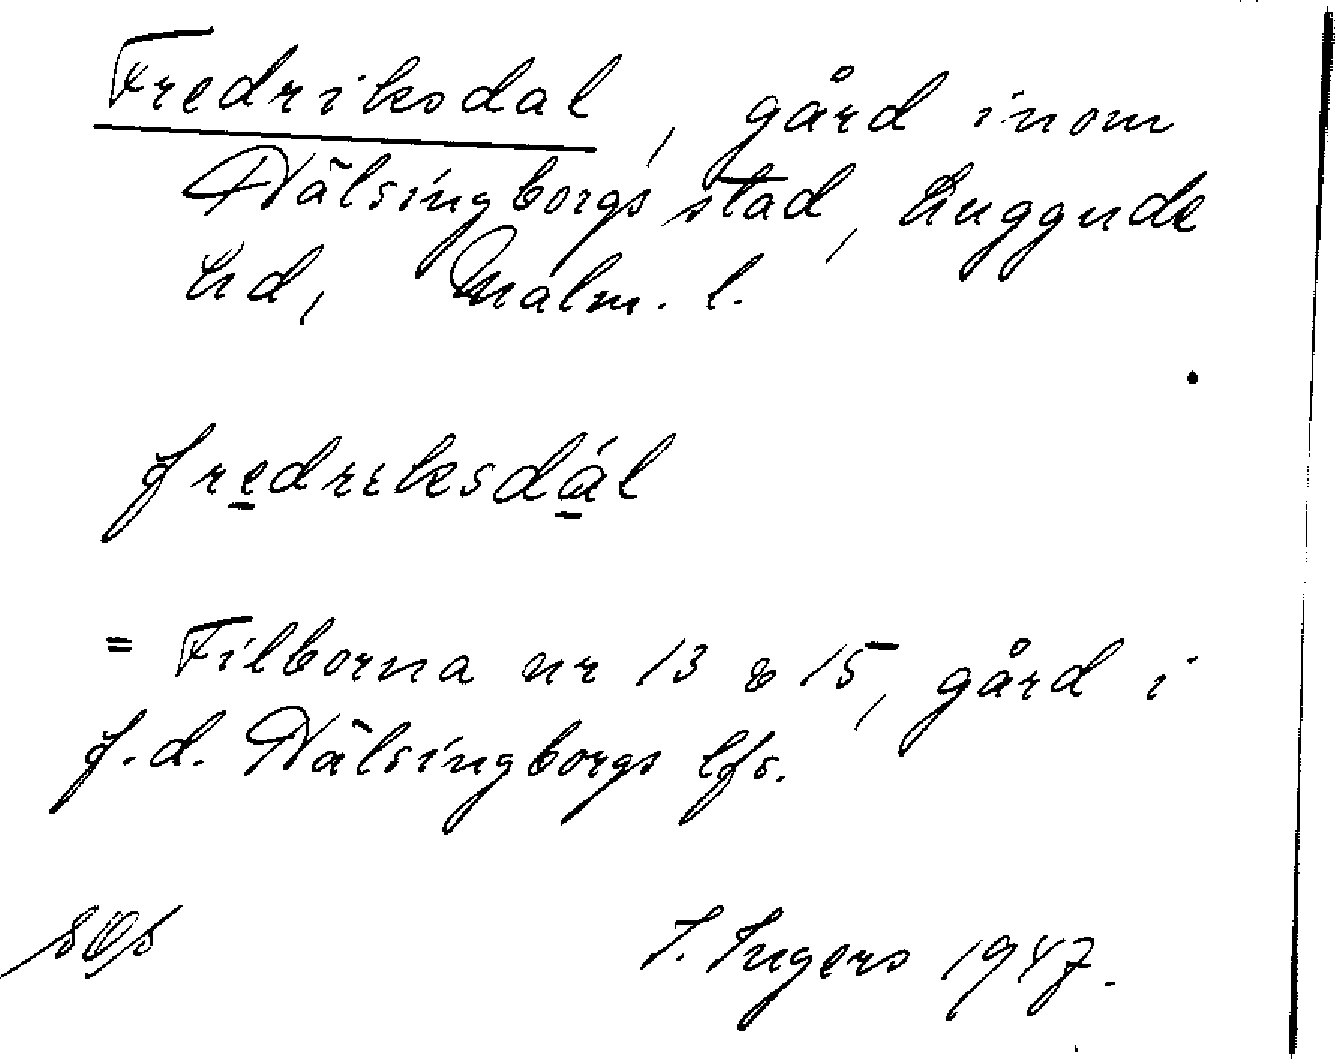 Fredriksdal, gård inom
Hälsingborgs stad, Luggude
hd, Malm. l.
fredriksdál
= Filborna nr 13 & 15, gård i
f.d. Hälsingborgs lfs.
I. Ingers 1947.